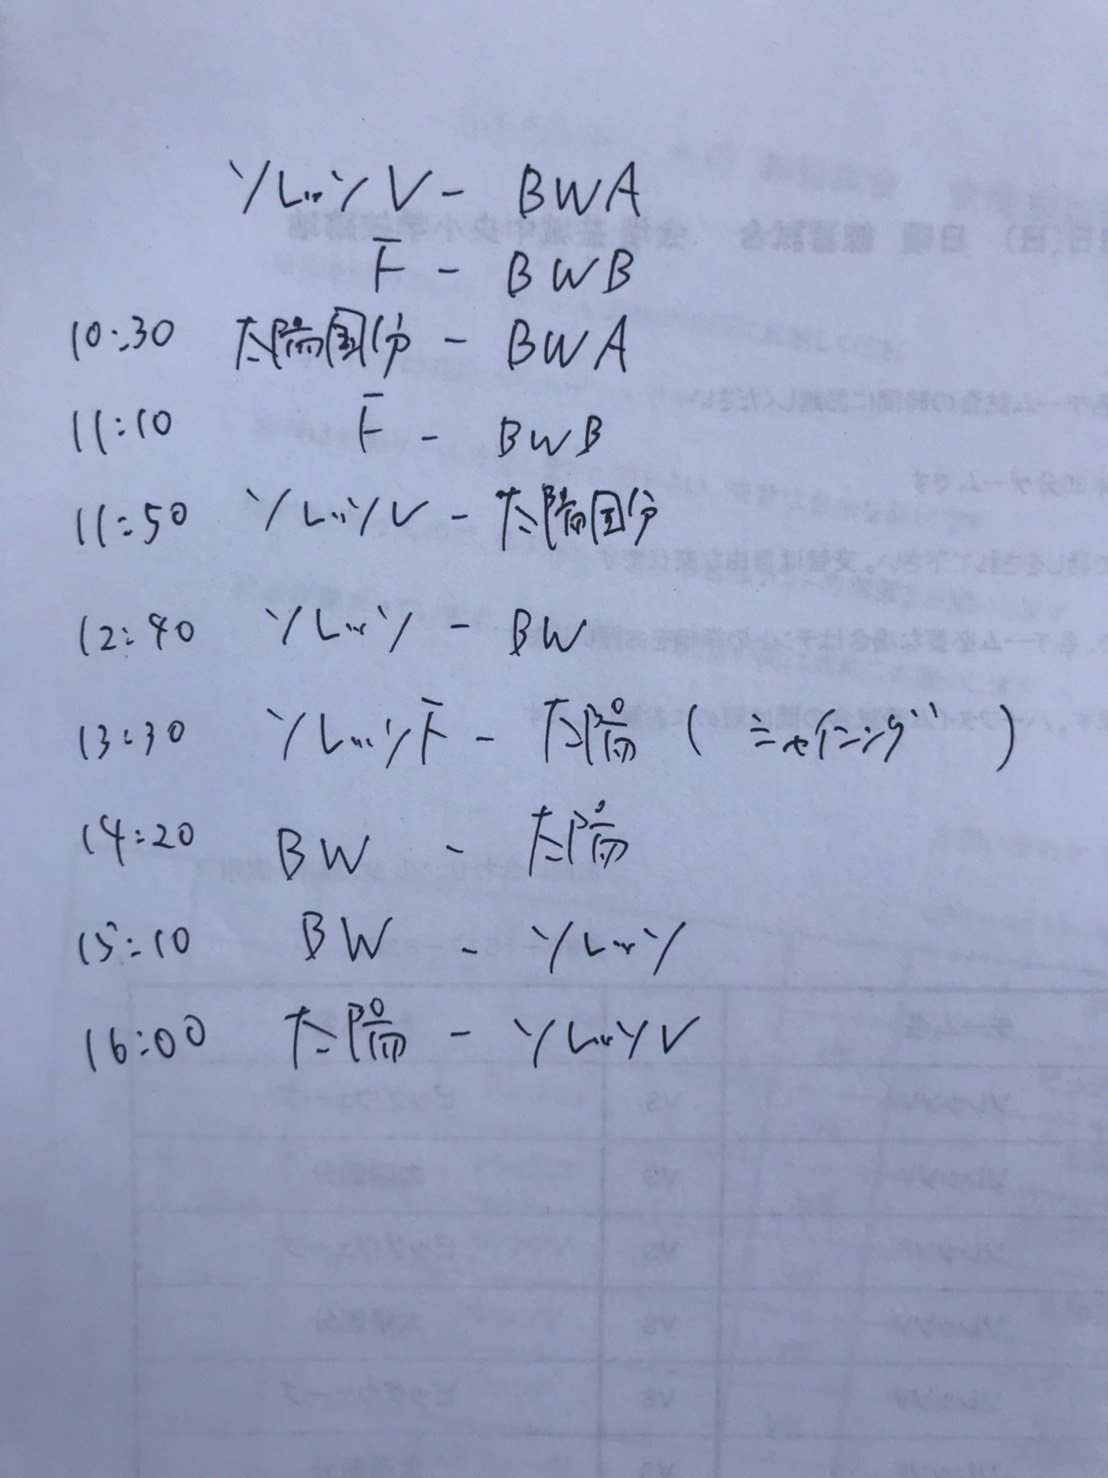 ソレッソV - BWA
F - BWB
10:30 太陽国分 - BWA
11:10 F - BWB
11:50 ソレッソV - 太陽国分
12:40 ソレッソ - BW
13:30 ソレッソF - 太陽 (シャイニング)
14:20 BW - 太陽
15:10 BW - ソレッソ
16:00 太陽 - ソレッソV